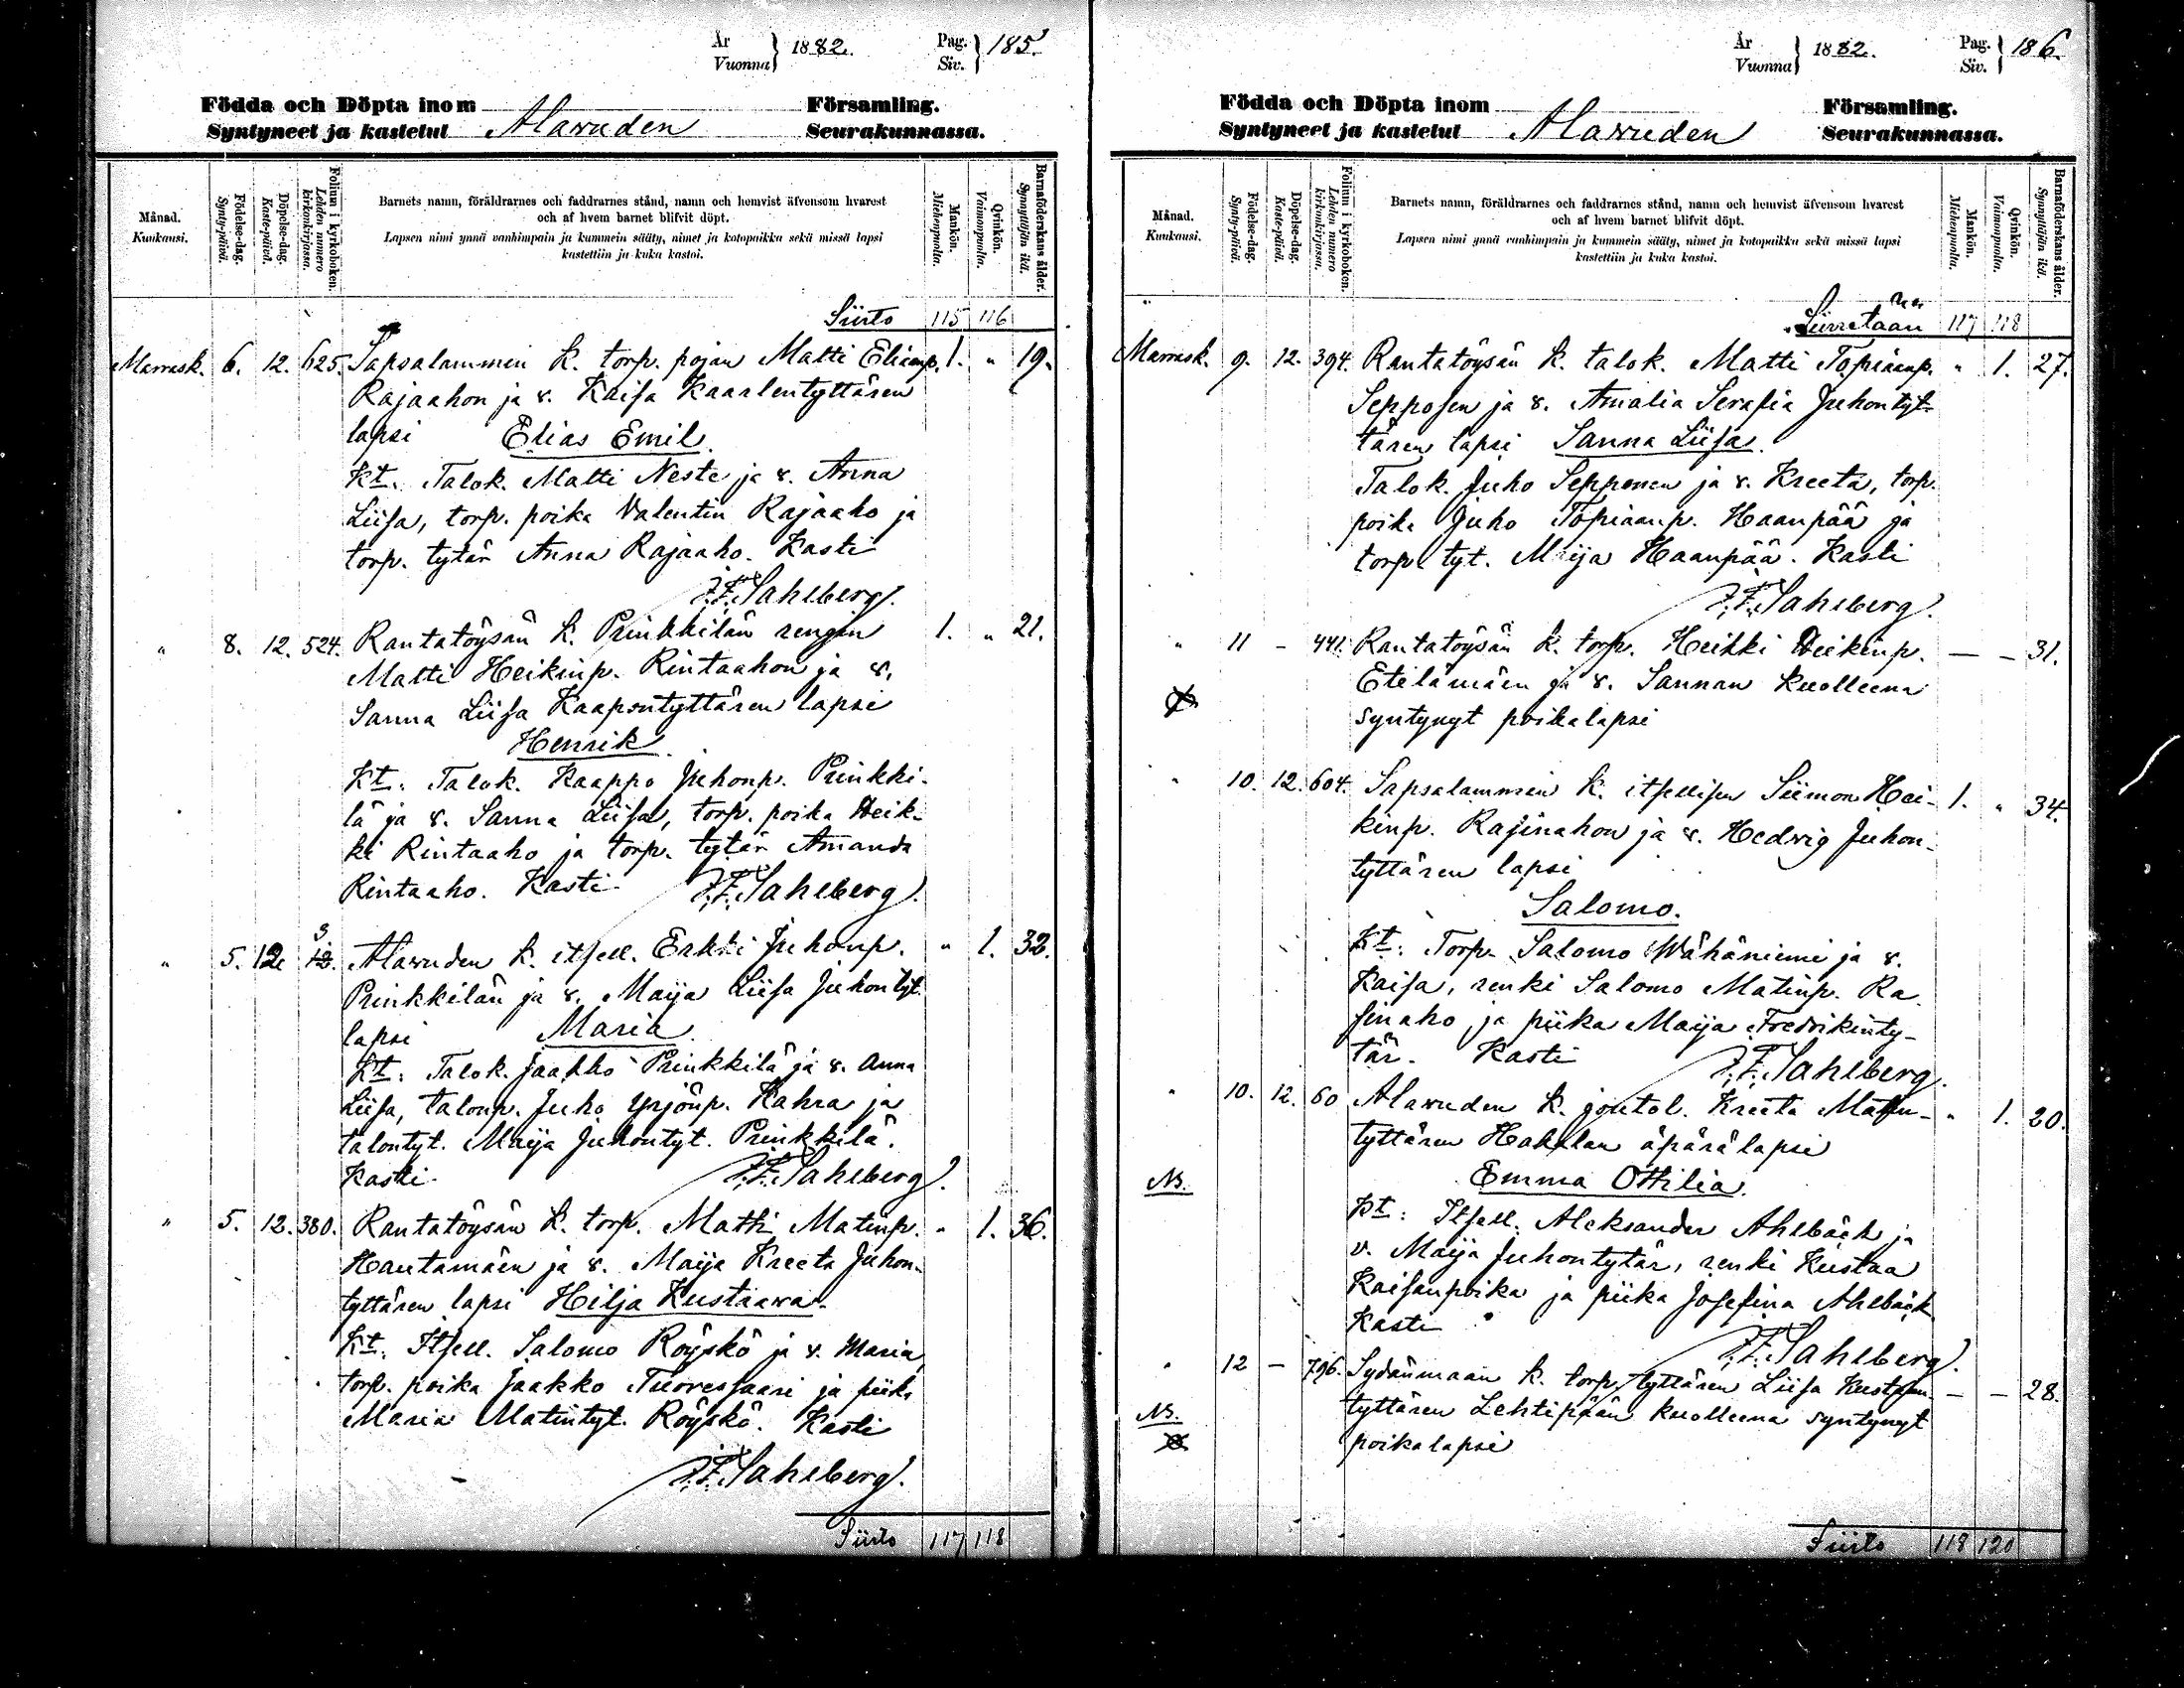 År
Vuonna } 1882.
Pag.
Siv. } 185.
Födda och Döpta inom Församling.
Syntyneet ja kastetut Alavuden Seurakunnassa.
Månad.
Kuukausi.
Födelse-dag.
Synty-päivä.
Döpelse-dag.
Kaste-päivä.
Folium i kyrkoboken.
Lehden numero kirkonkirjassa.
Barnets namn, föräldrarnes och faddrarnes stånd, namn och hemvist äfvensom hvarest
och af hvem barnet blifvit döpt.
Lapsen nimi ynnä vanhimpain ja kummein sääty, nimet ja kotopaikka sekä missä lapsi
kastettiin ja kuka kastoi.
Mankön.
Miehenpuolia.
Qvinkön.
Vaimonpuolia.
Barnaföderskans ålder.
Synnyttäjän ikä.
Siirto 115 116
Marrask. 6. 12. 625. Sapsalammin k. torp. pojan Matti Elianp. 1. " 19.
Rajaahon ja v. Kaisa Kaarlentyttären
lapsi Elias Emil.
Kt. Talok. Matti Neste ja v. Anna
Liisa, torp. poika Valentin Rajaaho ja
torp. tytär Anna Rajaaho. Kasti
J.F. Sahlberg.
" 8. 12. 524. Rantatöysän k. Prinkkilän rengin 1. " 21.
Matti Heikinp. Rintaahon ja v.
Sanna Liisa Kaapontyttären lapsi
Henrik.
Kt. Talok. Kaappo Juhonp. Prinkki-
lä ja v. Sanna Liisa, torp. poika Heik-
ki Rintaaho ja torp. tytär Amanda
Rintaaho. Kasti J.F. Sahlberg.
3
" 5. 12. 12. Alavuden k. itsell. Erkki Juhonp. " 1. 32.
Prinkkilän ja v. Maija Liisa Juhontyt.
lapsi Maria.
Kt. Talok. Jaakko Prinkkilä ja v. Anna
Liisa, talonp. Juho Yrjönp. Kahra ja
talontyt. Maija Juhontyt. Prinkkilä.
Kasti J.F. Sahlberg.
" 5. 12. 380. Rantatöysän k. torp. Matti Matinp. " 1. 36.
Hautamäen ja v. Maija Kreeta Juhon-
tyttären lapsi Hilja Kustaava.
Kt. Itsell. Salomo Röyskö ja v. Maria
torp. poika Jaakko Tuoressaari ja piika
Maria Matintyt. Röyskö. Kasti
J.F. Sahlberg.
Siirto 117 118
År
Vuonna } 1882.
Pag.
Siv. } 186.
Födda och Döpta inom Församling.
Syntyneet ja kastetut Alavuden Seurakunnassa.
Månad.
Kuukausi.
Födelse-dag.
Synty-päivä.
Döpelse-dag.
Kaste-päivä.
Folium i kyrkoboken.
Lehden numero kirkonkirjassa.
Barnets namn, föräldrarnes och faddrarnes stånd, namn och hemvist äfvensom hvarest
och af hvem barnet blifvit döpt.
Lapsen nimi ynnä vanhimpain ja kummein sääty, nimet ja kotopaikka sekä missä lapsi
kastettiin ja kuka kastoi.
Mankön.
Miehenpuolia.
Qvinkön.
Vaimonpuolia.
Barnaföderskans ålder.
Synnyttäjän ikä.
Siirretaan 117 118
Marrask. 9. 12. 394. Rantatöysän k. talok. Matti Topiaanp. " 1. 27.
Sepposen ja v. Amalia Serafia Juhontyt-
tären lapsi Sanna Liisa.
Talok. Juho Sepponen ja v. Kreeta, torp.
poika Juho Topiaanp. Haanpää ja
torp. tyt. Maija Haanpää. Kasti
J.F. Sahlberg.
" 11 - 441. Rantatöysän k. torp. Heikki Heikinp. — — 31.
Etelämäen ja v. Sannan kuolleena
syntynyt poikalapsi
" 10. 12. 604. Sapsalammin k. itsellisen Siimon Hei- 1. " 34.
kinp. Rajinahon ja v. Hedvig Juhon-
tyttären lapsi
Salomo.
Kt: Torp. Salomo Wähäniemi ja v.
Kaisa, renki Salomo Matinp. Ra
jinaho ja piika Maija Fredrikinty-
tär. Kasti J.F. Sahlberg.
" 10. 12. 60 Alavuden k. joutol. Kreeta Matin- " 1. 20.
tyttären Hakolan äpärälapsi
NB. Emma Ottilia.
Kt: Itsell. Aleksander Ahlbäck ja
v. Maija Juhontytär, renki Kustaa
Kaisanpoika ja piika Josefina Ahlbäck
Kasti J.F. Sahlberg.
" 12 - 796. Sydänmaan k. torp. tyttären Liisa Kustaan- — — 28.
NB. tyttären Lehtipään kuolleena syntynyt
poikalapsi
Siirto 118 120